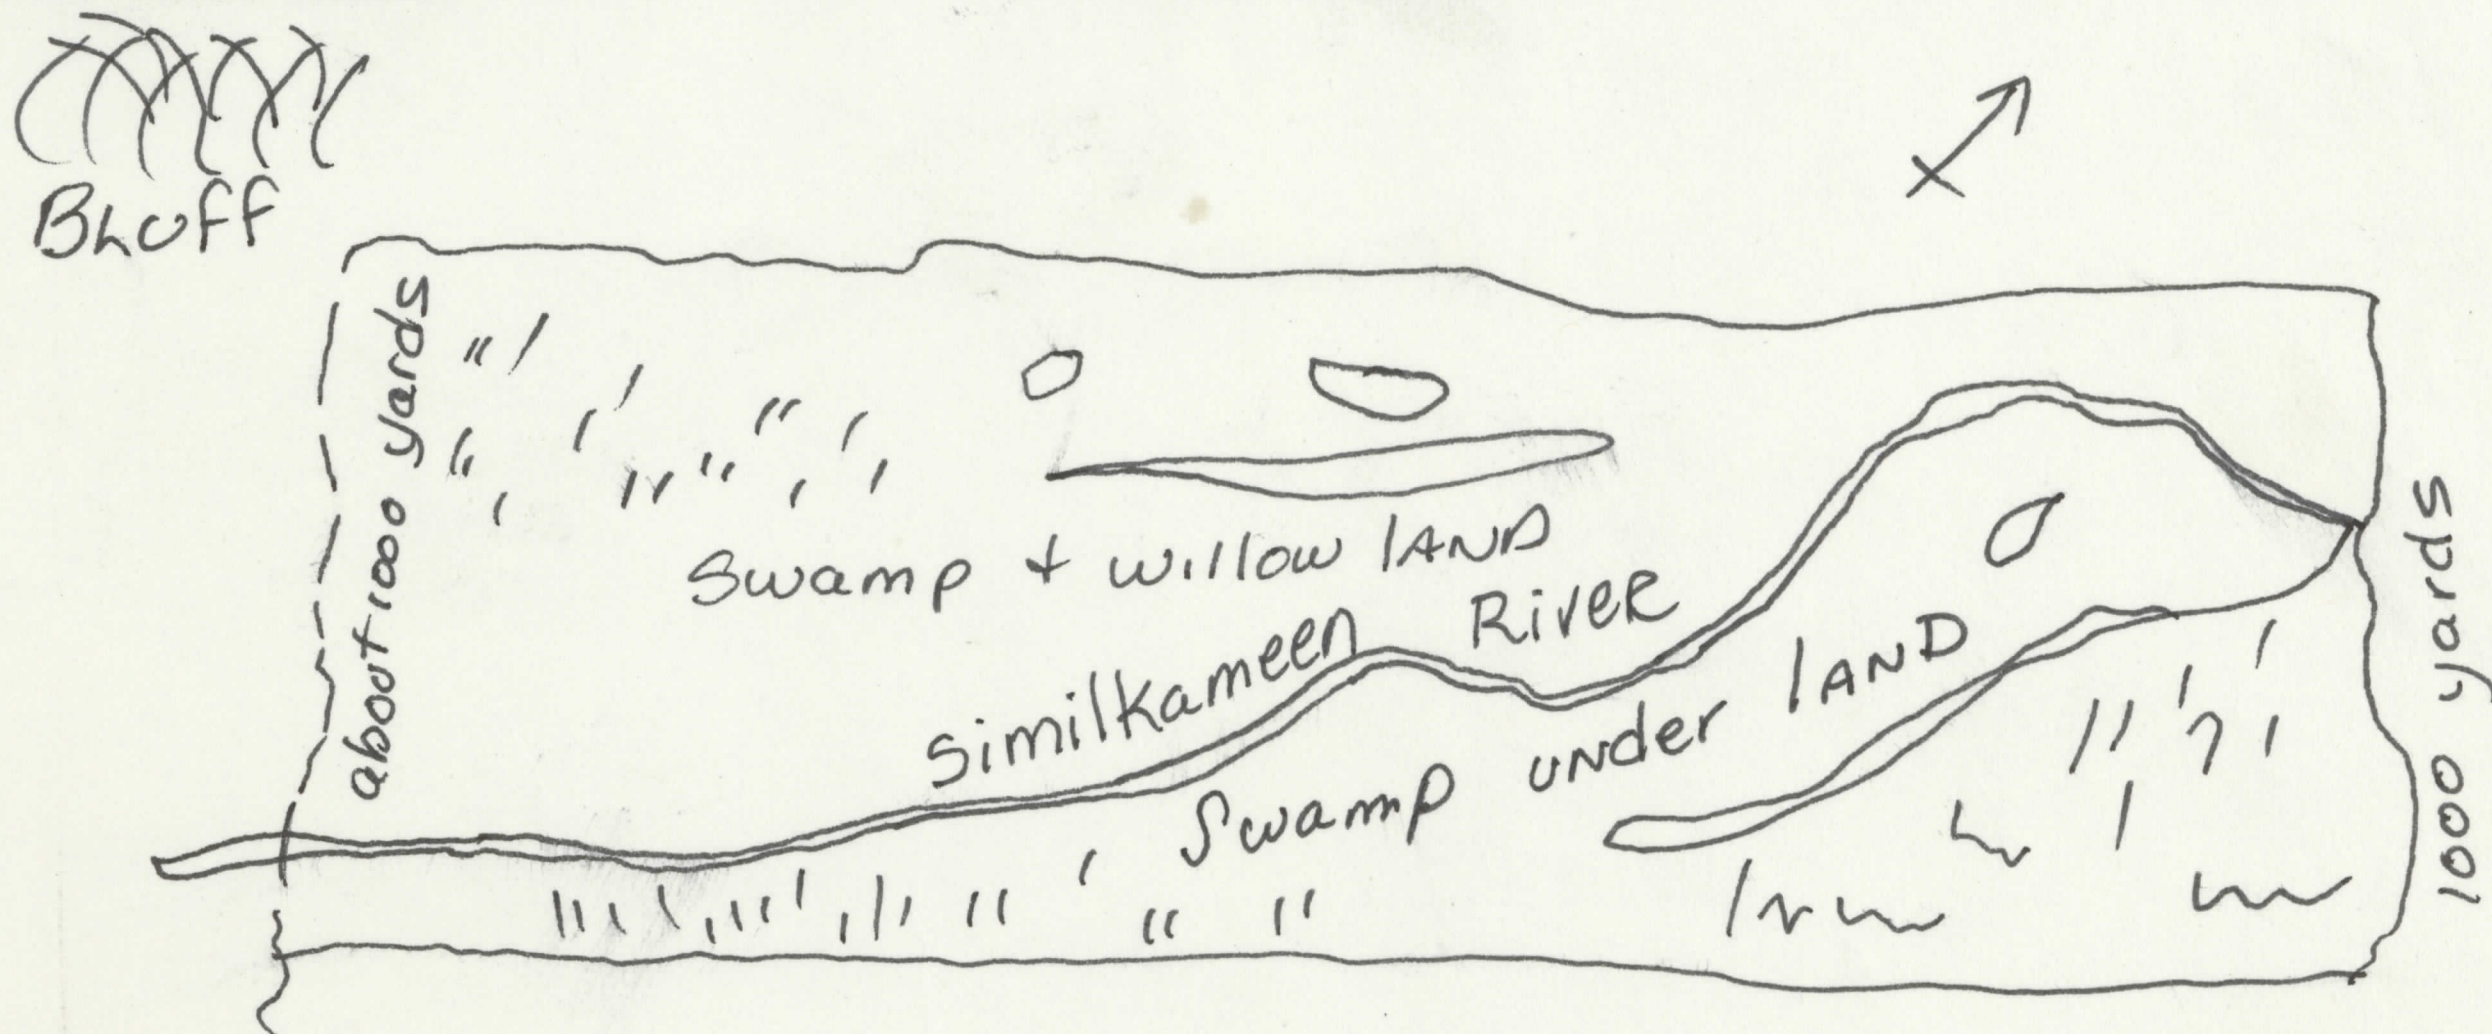 Bluff
about 1000 yards
Swamp + willow LAND
Similkameen River
Swamp under LAND
1000 yards